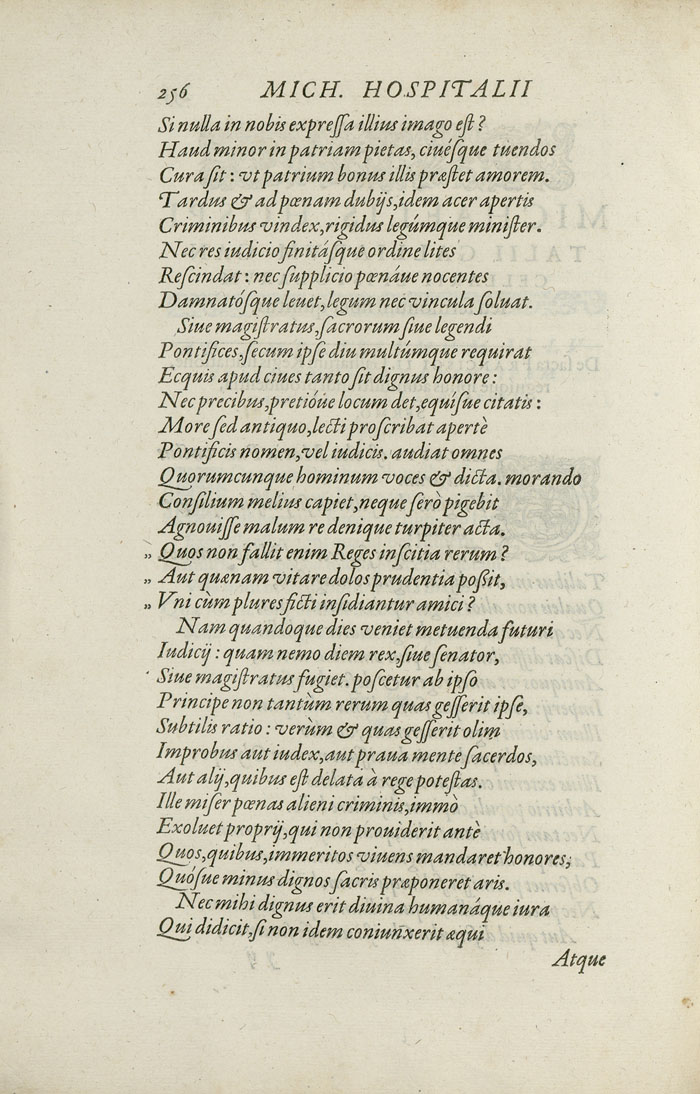 256 MICH. HOSPITALII
Si nulla in nobis expreſſa illius imago eſt?
Haud minor in patriam pietas, ciuéſque tuendos
Cura ſit: vt patrium bonus illis præſtet amorem.
Tardus & ad pœnam dubijs, idem acer apertis
Criminibus vindex, rigidus legúmque miniſter.
Nec res iudicio finitáſque ordine lites
Reſcindat: nec ſupplicio pœnáue nocentes
Damnatóſque leuet, legum nec vincula ſoluat.
Siue magiſtratus, ſacrorum ſiue legendi
Pontifices, ſecum ipſe diu multúmque requirat
Ecquis apud ciues tanto ſit dignus honore:
Nec precibus, pretióue locum det, equíſue citatis:
More ſed antiquo, lecti proſcribat apertè
Pontificis nomen, vel iudicis. audiat omnes
Quorumcunque hominum voces & dicta. morando
Conſilium melius capiet, neque ſerò pigebit
Agnouiſſe malum re denique turpiter acta.
„ Quos non fallit enim Reges inſcitia rerum?
„ Aut quænam vitare dolos prudentia poßit,
„ Vni cùm plures ficti inſidiantur amici?
Nam quandoque dies veniet metuenda futuri
Iudicij: quam nemo diem rex, ſiue ſenator,
Siue magiſtratus fugiet. poſcetur ab ipſo
Principe non tantùm rerum quas geſſerit ipſe,
Subtilis ratio: verùm & quas geſſerit olim
Improbus aut iudex, aut praua mente ſacerdos,
Aut alij, quibus eſt delata à rege poteſtas.
Ille miſer pœnas alieni criminis, immò
Exoluet proprij, qui non prouiderit antè
Quos, quibus, immeritos viuens mandaret honores,
Quóſue minus dignos ſacris præponeret aris.
Nec mihi dignus erit diuina humanáque iura
Qui didicit, ſi non idem coniunxerit æqui
Atque